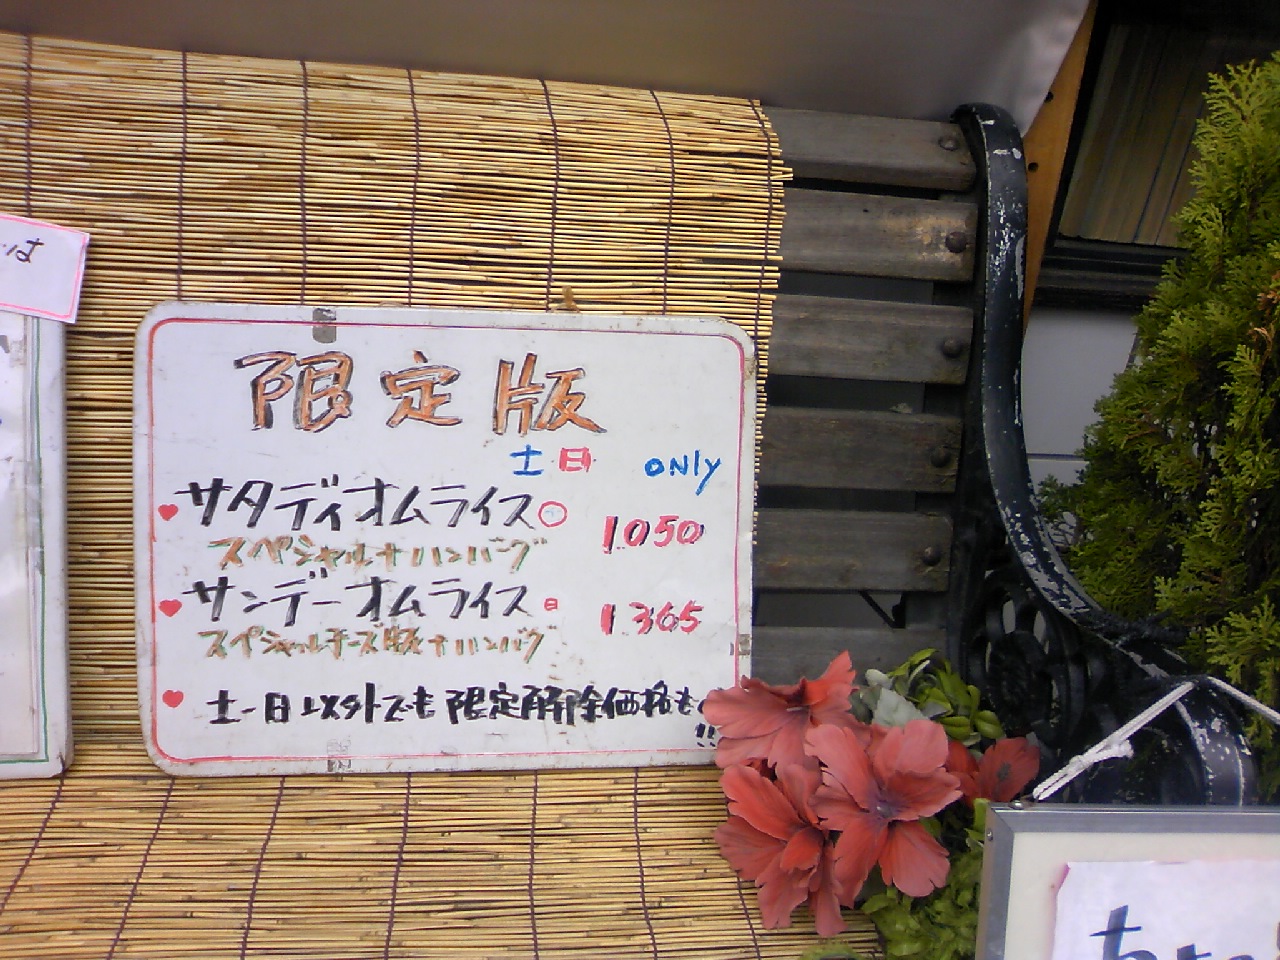 限定版
土日 only
♥サタディオムライス 1050
スペシャルナハンバーグ
♥サンデーオムライス 日 1365
スペシャルチーズ豚ナハンバーグ
♥土・日以外でも限定解除価格も
!!